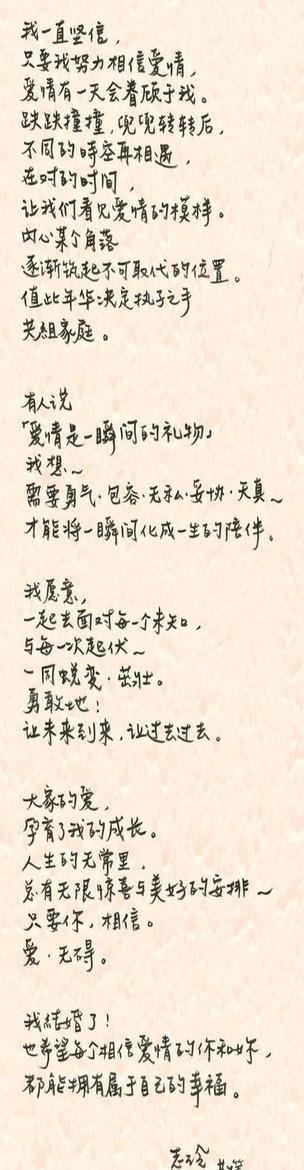 我一直坚信，
只要我努力相信爱情，
爱情有一天会眷顾于我。
跌跌撞撞，兜兜转转后，
不同的時空再相遇，
在对的时间，
让我们看见爱情的模样。
内心某个角落
逐渐筑起不可取代的位置。
值此年华决定执子之手
共组家庭。
有人说
「爱情是一瞬间的礼物」
我想~
需要勇气·包容·无私·妥协·天真~
才能将一瞬间化成一生的陪伴。
我愿意，
一起去面对每一个未知，
与每一次起伏~
一同蜕变·茁壮。
勇敢地！
让未来到来，让过去过去。
大家的爱，
孕育了我的成长。
人生的无常里，
总有无限惊喜与美好的安排~
只要你，相信。
爱·无碍。
我结婚了！
也希望每个相信爱情的你和妳，
都能拥有属于自己的幸福。
志玲